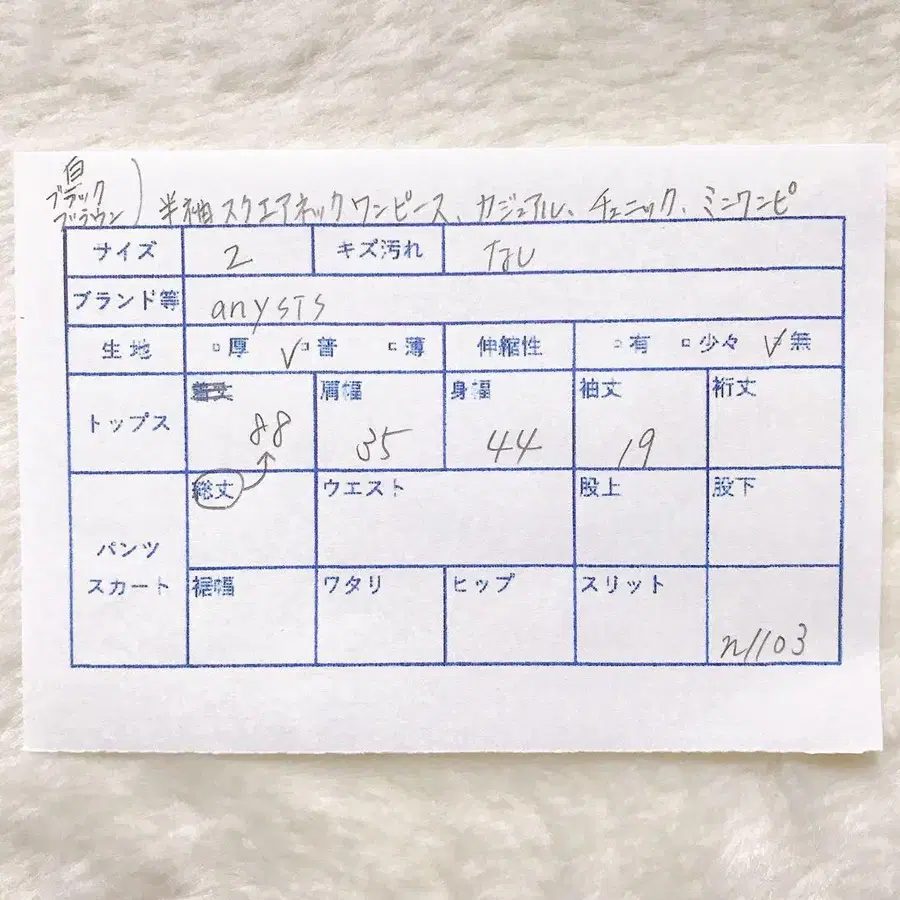 白
ブラック
ブラウン
半袖スクエアネックワンピース、カジュアル、チュニック、ミニワンピ
サイズ 2 キズ汚れ なし
ブランド等 anysis
生地 □厚 ✓□普 □薄 伸縮性 □有 □少々 ✓□無
トップス 着丈 肩幅 身幅 袖丈 裄丈
88 35 44 19
パンツ スカート 総丈 ウエスト 股上 股下
裾幅 ワタリ ヒップ スリット
n1103